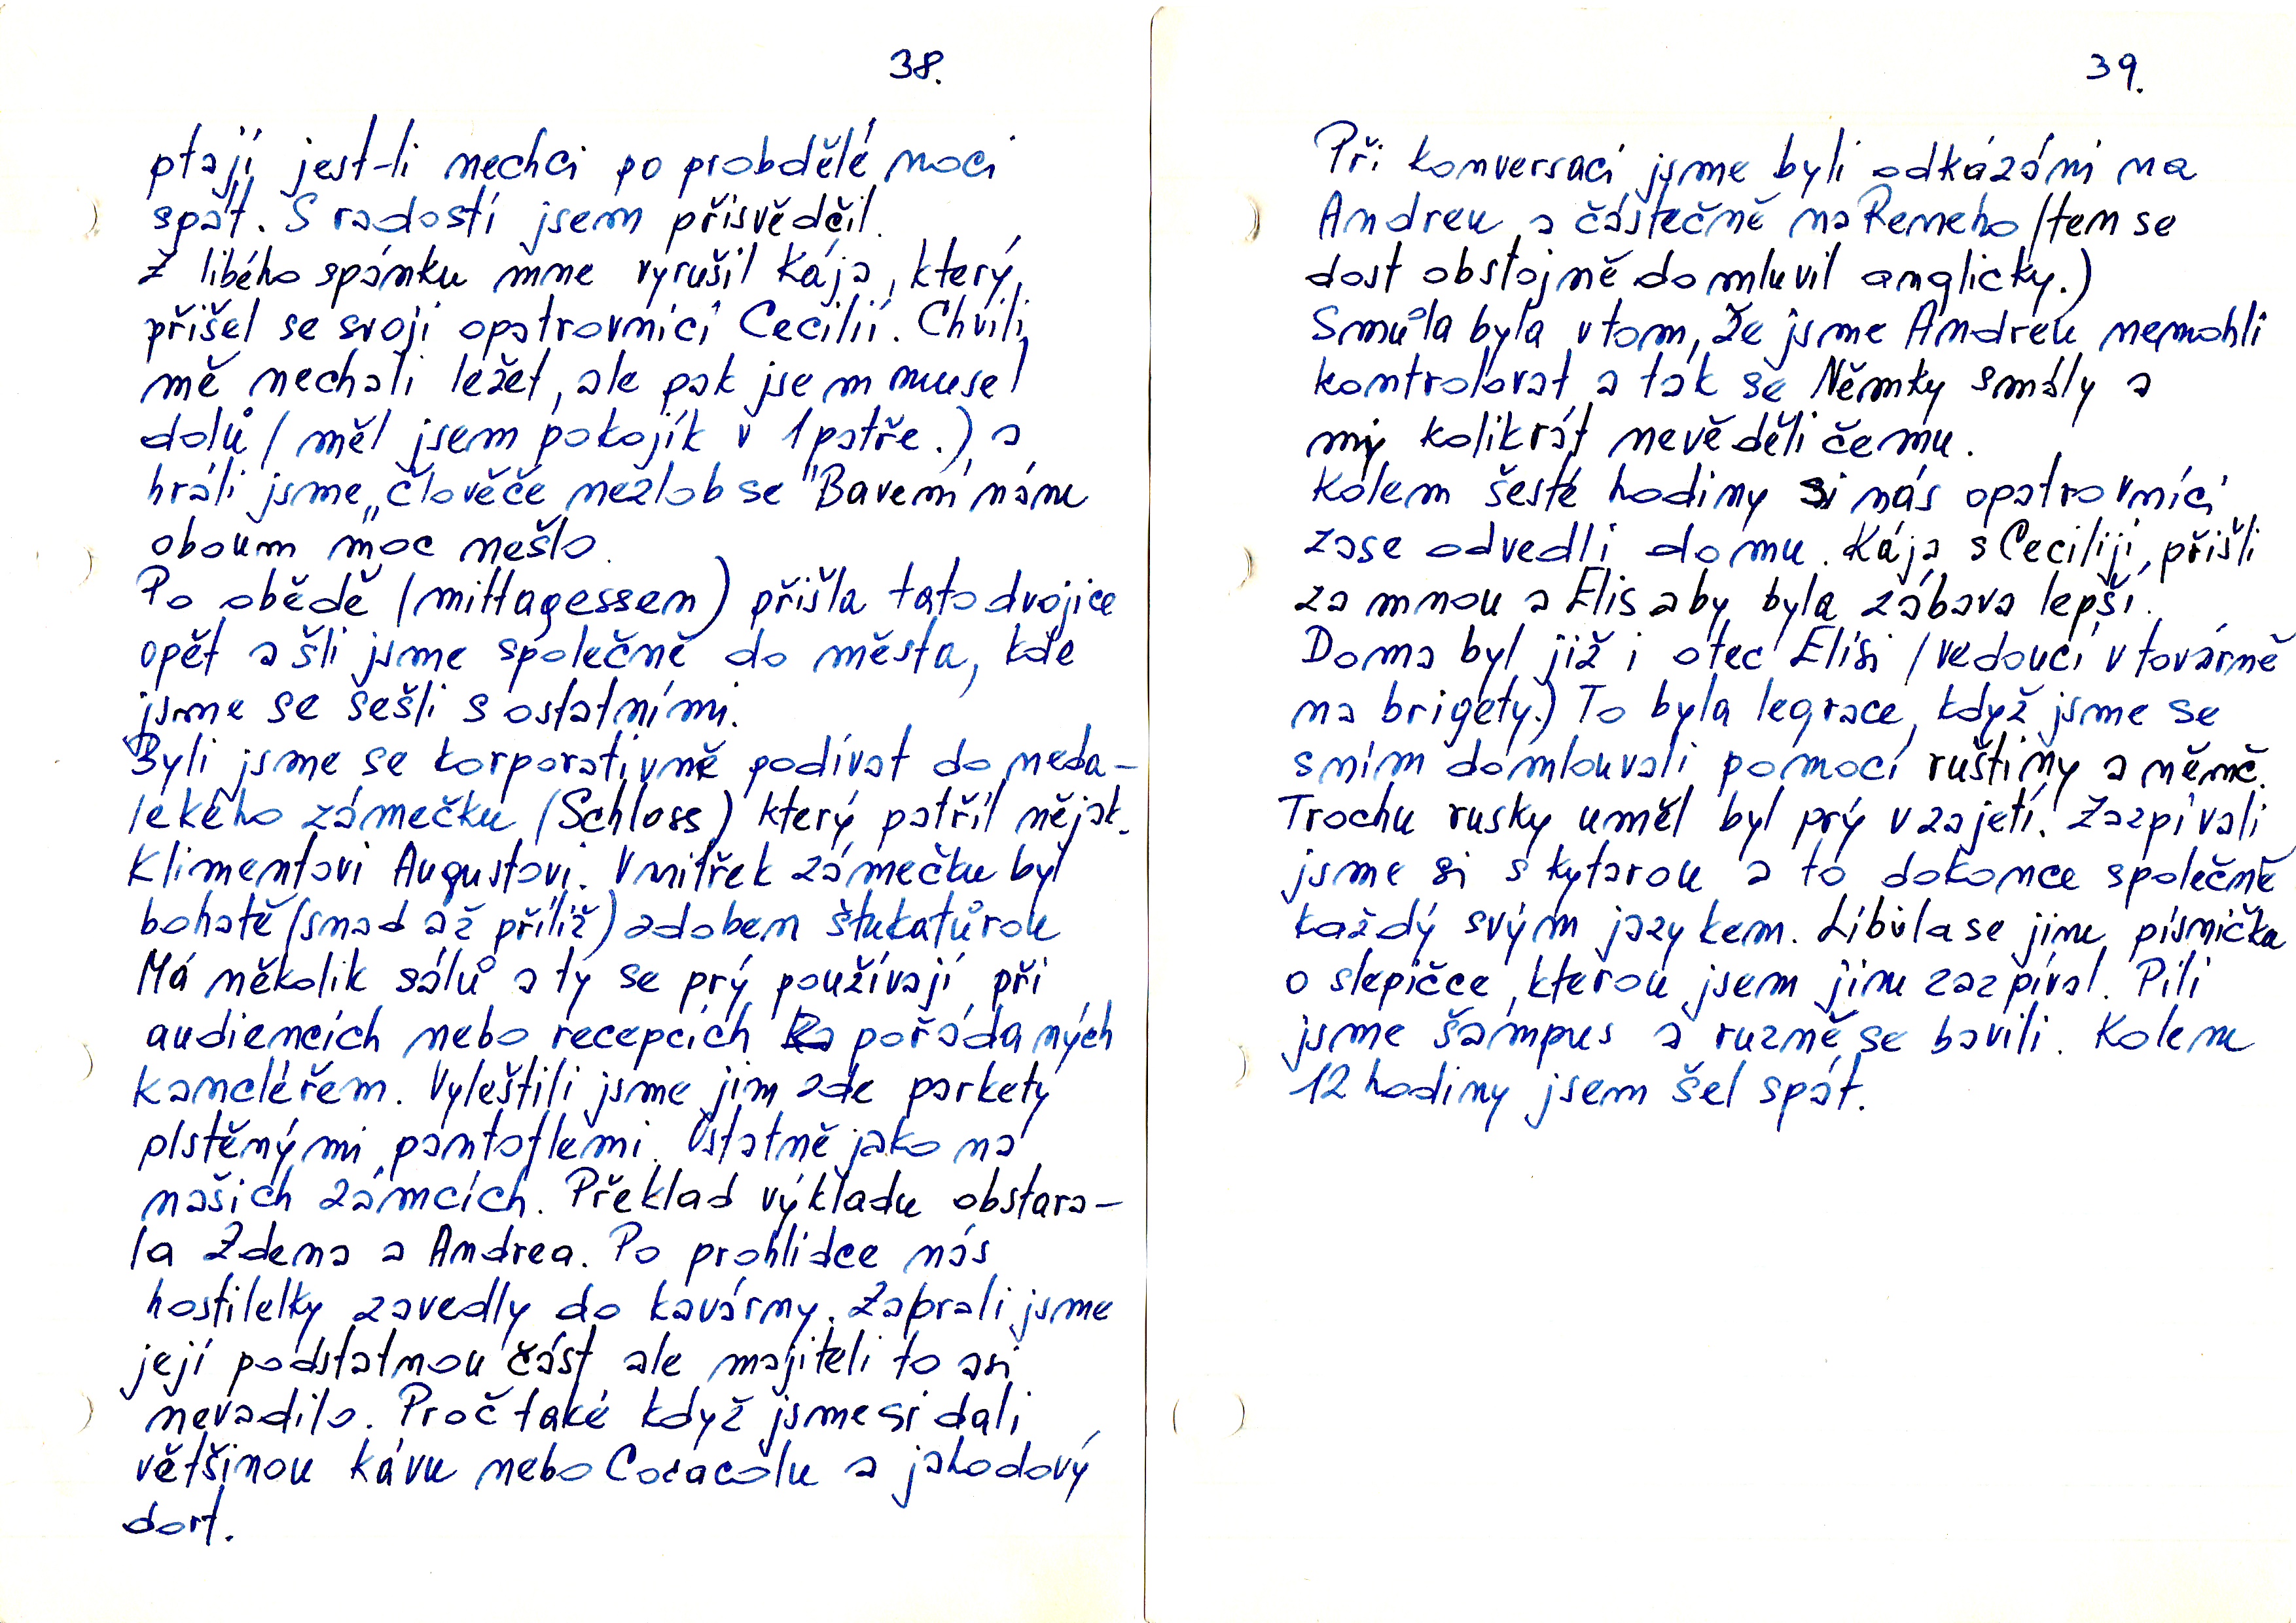 38.
ptají jest-li nechci po probdělé noci
spát. S radostí jsem přisvědčil.
Z libého spánku mne vyrušil Kája, který
přišel se svoji opatrovnicí Cecilií. Chvíli
mě nechali ležet, ale pak jsem musel
dolů / měl jsem pokojík v 1 patře.) a
hráli jsme „člověče nezlob se" Bavení nám
oboum moc nešlo.
Po obědě (mittagessen) přišla tato dvojice
opět a šli jsme společně do města, kde
jsme se sešli s ostatními.
Byli jsme se korporativně podívat do neda-
lekého zámečku (Schloss) který patřil nějak.
Klimentovi Augustovi. Vnitřek zámečku byl
bohatě (snad až příliž) zdoben štukatůrou
Má několik sálů a ty se prý používají při
audiencích nebo recepcích pořádaných
kancléřem. Vyleštili jsme jim zde parkety
plstěnými pantoflemi. Ostatně jako na
našich zámcích. Překlad výkladu obstara-
la Zdena a Andrea. Po prohlídce nás
hostilelky zavedly do kavárny. Zabrali jsme
její podstatnou část ale majiteli to asi
nevadilo. Proč také když jsme si dali
většinou kávu nebo Cocacolu a jahodový
dort.
39.
Při konversaci jsme byli odkázáni na
Andreu a částečně na Reneho /ten se
dost obstojně domluvil anglicky.)
Smůla byla v tom, že jsme Andreu nemohli
kontrolovat a tak se Němky smály a
my kolikrát nevěděli čemu.
Kolem šesté hodiny si nás opatrovníci
zase odvedli domu. Kája s Ceciliji, přišli
za mnou a Elis aby byla zábava lepší.
Doma byl již i otec Elisi /vedoucí v továrně
na brigety.) To byla legrace, když jsme se
sním domlouvali pomocí ruštiny a němč.
Trochu rusky uměl byl prý v zajetí. Zazpívali
jsme si s kytarou a to dokonce společně
každý svým jazykem. Líbila se jim písnička
o slepičce, kterou jsem jim zazpíval. Pili
jsme šampus a ruzně se bavili. Kolem
12 hodiny jsem šel spát.